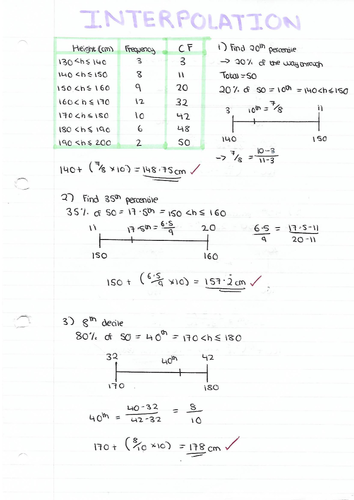 INTERPOLATION
Height (cm) Frequency CF
130<h≤140 3 3
140<h≤150 8 11
150<h≤160 9 20
160<h≤170 12 32
170<h≤180 10 42
180<h≤190 6 48
190<h≤200 2 50
1) Find 20th percentile
→ 20% of the way through
Total = 50
20% of 50 = 10th = 140<h≤150
3 10th = 7/8 11
140 150
→ 7/8 = 10-3/11-3
140 + (7/8 × 10) = 148.75cm ✓
2) Find 35th percentile
35% of 50 = 17.5th = 150<h≤160
11 17.5th = 6.5/9 20
150 160
6.5/9 = 17.5-11/20-11
150 + (6.5/9 × 10) = 157.2̇ cm ✓
3) 8th decile
80% of 50 = 40th = 170<h≤180
32 40th 42
170 180
40th = 40-32/42-32 = 8/10
170 + (8/10 × 10) = 178cm ✓